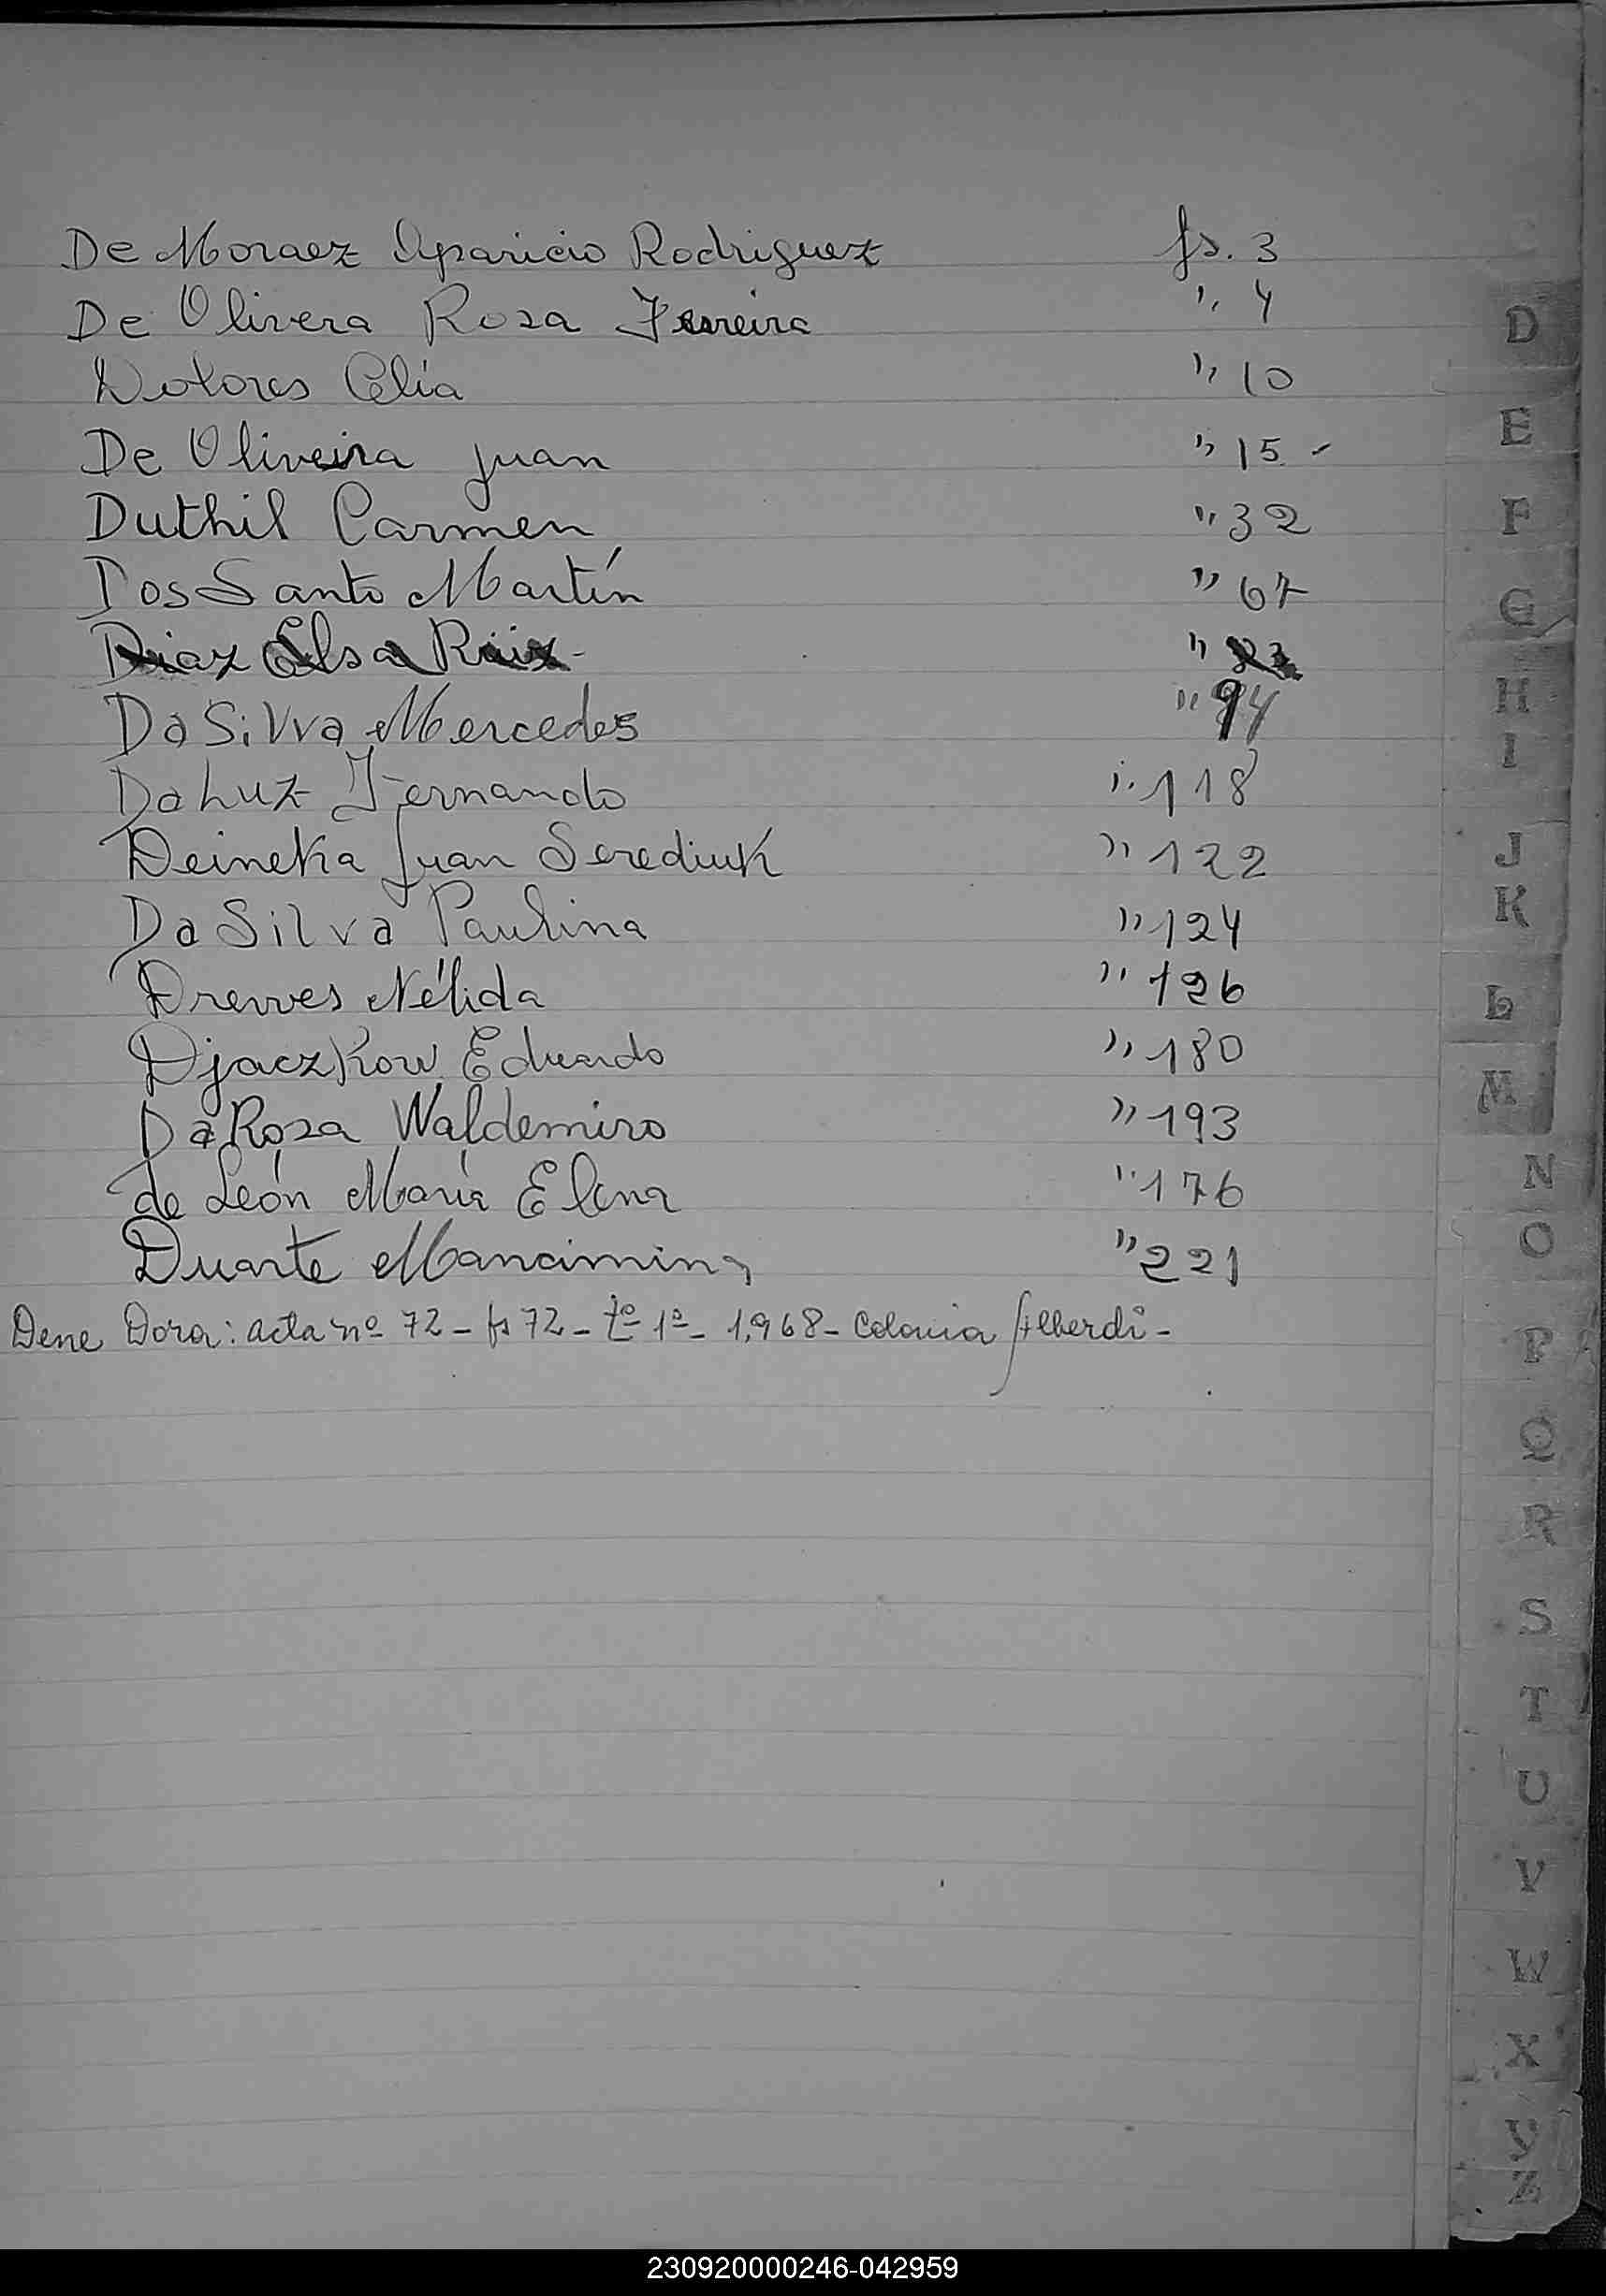 De Moraez Aparicio Rodriguez fs. 3
De Olivera Rosa Ferreira " 4
Dolores Celia " 10
De Oliveira Juan " 15 -
Duthil Carmen " 32
Dos Santo Martín " 67
Diaz Elsa Ruiz - "
Da Silva Mercedes " 94
Da Luz Fernando " 118
Deineka Juan Serediuk " 122
Da Silva Paulina " 124
Drewes Nélida " 126
Djaczkow Eduardo " 180
Da Rosa Waldemiro " 193
de León María Elena " 176
Duarte " 221
Dene Dora: acta nº 72 - fs 72 - tº 1º - 1,968 - Colonia Alberdi -
D
E
F
G
H
I
J
K
L
M
N
O
P
Q
R
S
T
U
V
W
X
Y
Z
230920000246-042959